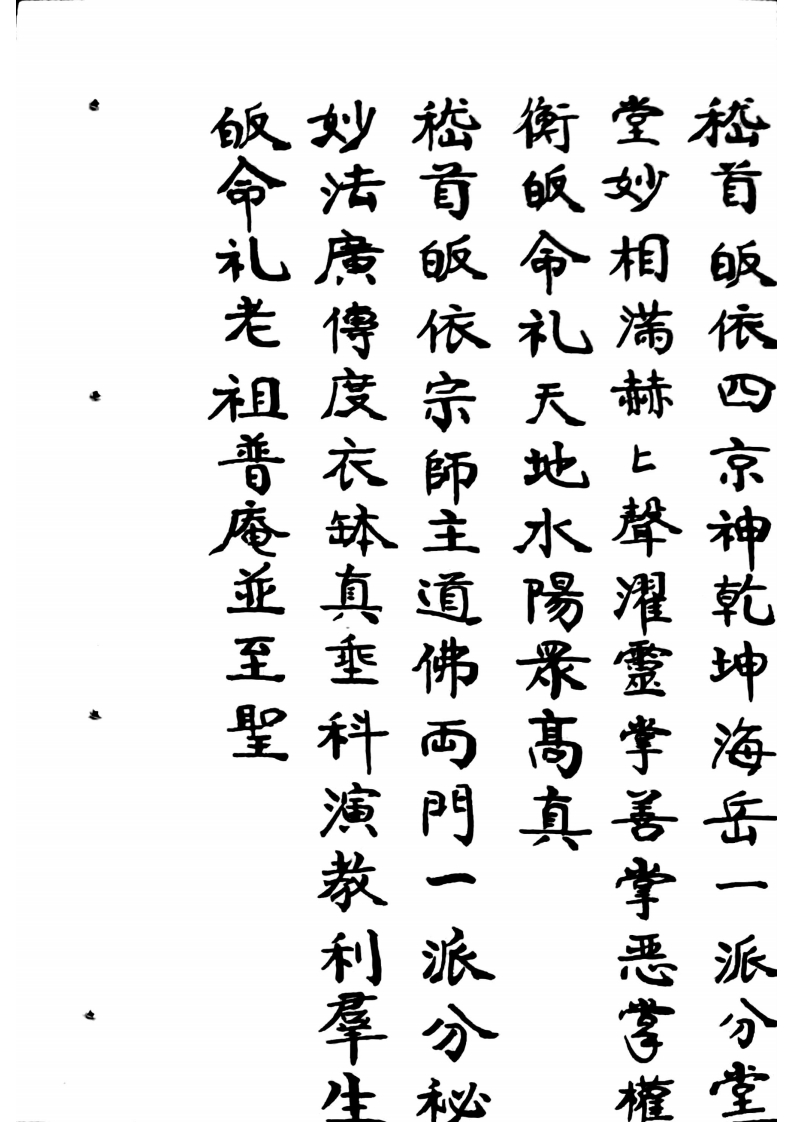 嵇首皈依四京神乾坤海岳一派分堂
堂妙相滿赫〻聲濯靈掌善掌恶掌權
衡皈命礼天地水陽眾髙真
嵇首皈依宗師主道佛両門一派分秘
妙法廣傳度衣缽真埀科演教利羣生
皈命礼老祖普庵並至聖